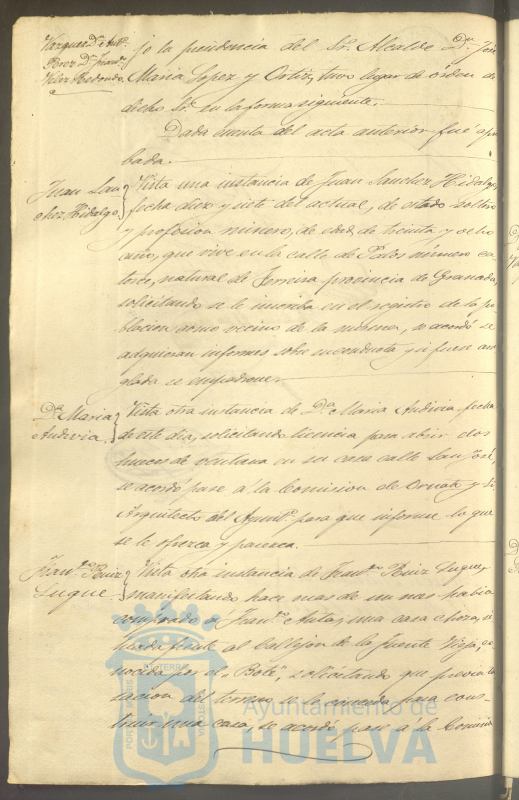 Vazquez, D. Antº
Perez D. Franº
Velez Redondo.
jo la presidencia del Sr. Alcalde D. José
Maria Lopez y Ortiz, tuvo lugar de órden de
dicho Sr. en la forma siguiente.
Dada cuenta del acta anterior fué apro
bada.
Juan San
chez Hidalgo,
Vista una instancia de Juan Sanchez Hidalgo,
fecha diez y siete del actual, de estado soltero
y profesion minero, de edad de treinta y ocho
años, que vive en la calle de Palos número ca
torce, natural de Ferreira provincia de Granada,
solicitando se le inscriba en el registro de la po
blacion como vecino de la misma, se acordó se
adquieran informes sobre su conducta y si fuese arre
glada se empadrone.
Dª Maria
Audivia.
Vista otra instancia de Dª Maria Audivia, fecha
de este dia, solicitando licencia para abrir dos
huecos de ventana en su casa calle San José,
se acordó pase á la Comision de Ornato y
Arquitecto del Ayuntº para que informe lo que
se le ofrezca y parezca.
Franº Ruiz
Luque
Vista otra instancia de Franº Ruiz Luque,
manifestando hace mas de un mes habia
comprado a Franº una casa choza, si
tuada frente al Callejon de la Fuente Vieja, co
nocida por el "Bote", solicitando que previa ta
sacion del terreno se le conceda para cons
truir una casa, se acordó pase á la Comision
PORTUS MARIS
ET TERRAE
Ayuntamiento de
HUELVA